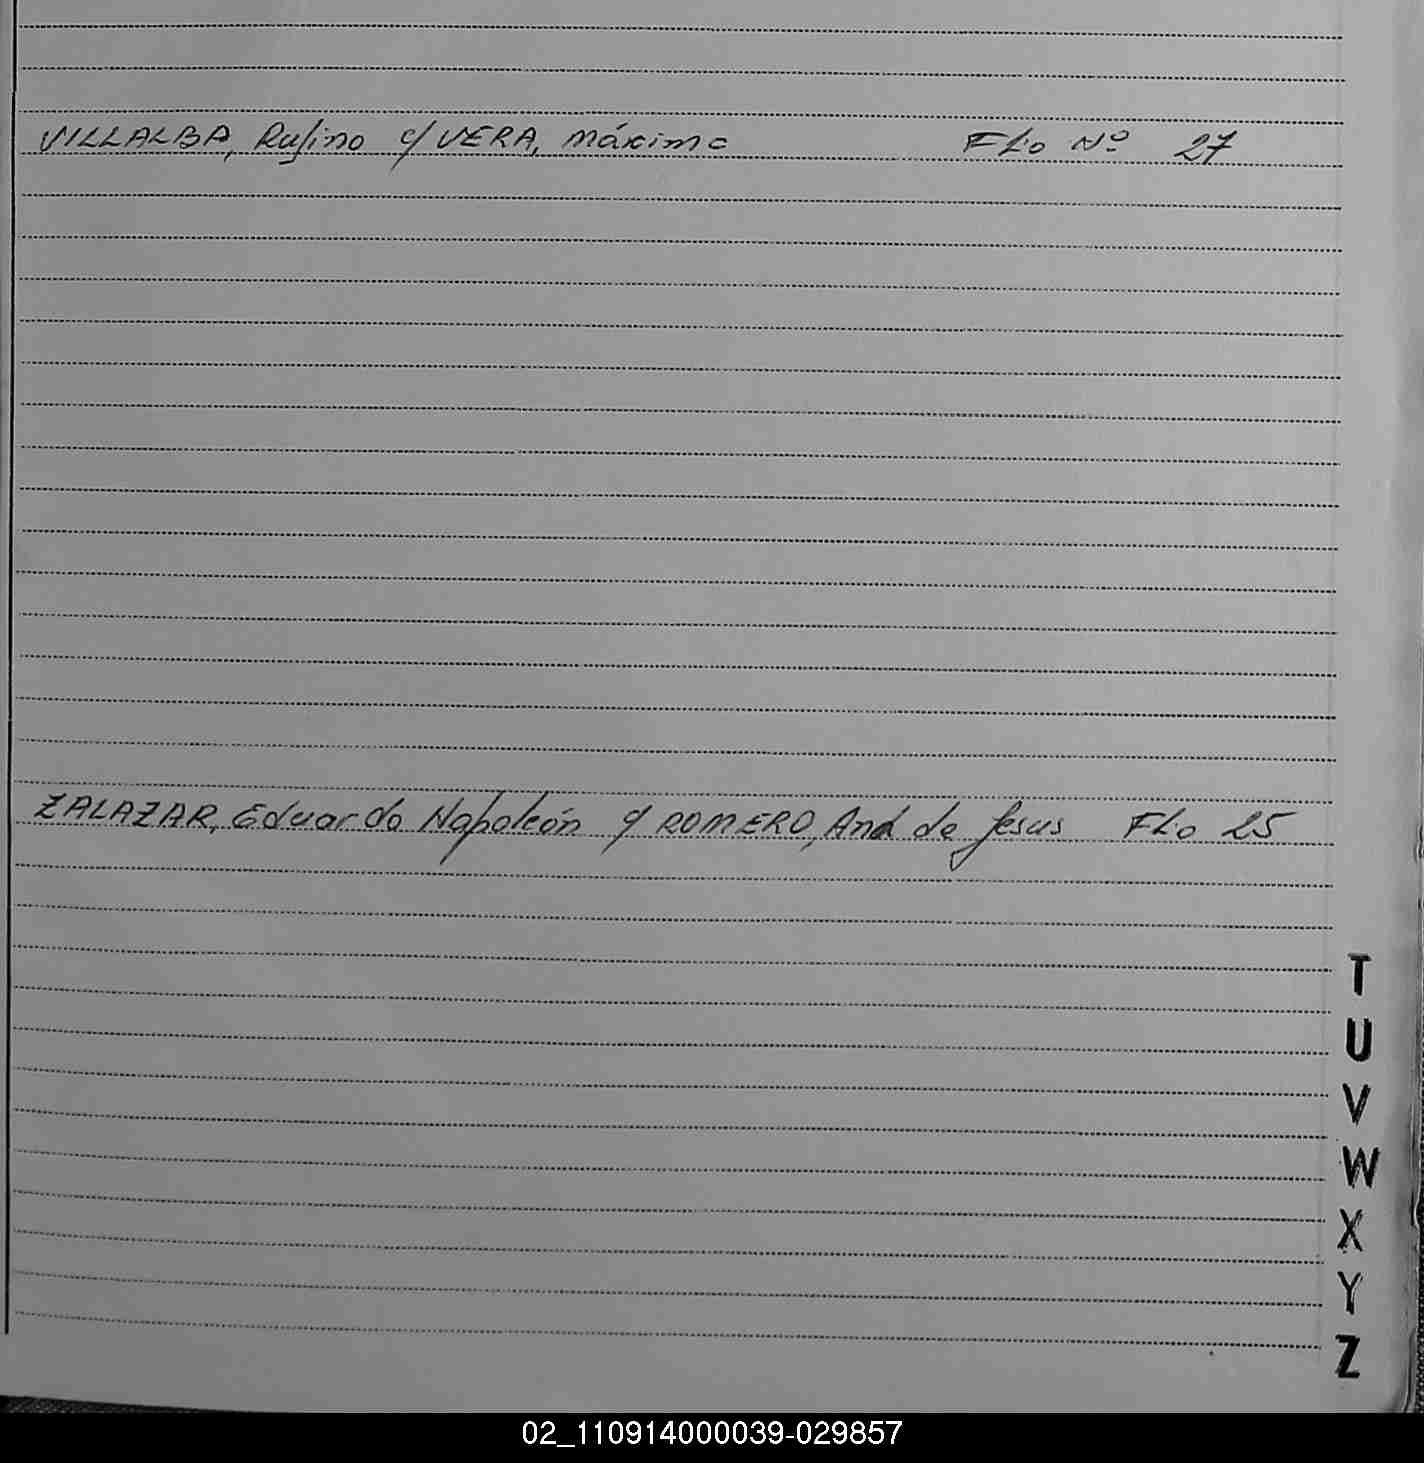 VILLALBA, Rufino c/ VERA, Máximo Flio Nº 27
ZALAZAR, Eduardo Napoleón c/ ROMERO, Ana de Jesus Flio 25
T
U
V
W
X
Y
Z
02_110914000039-029857